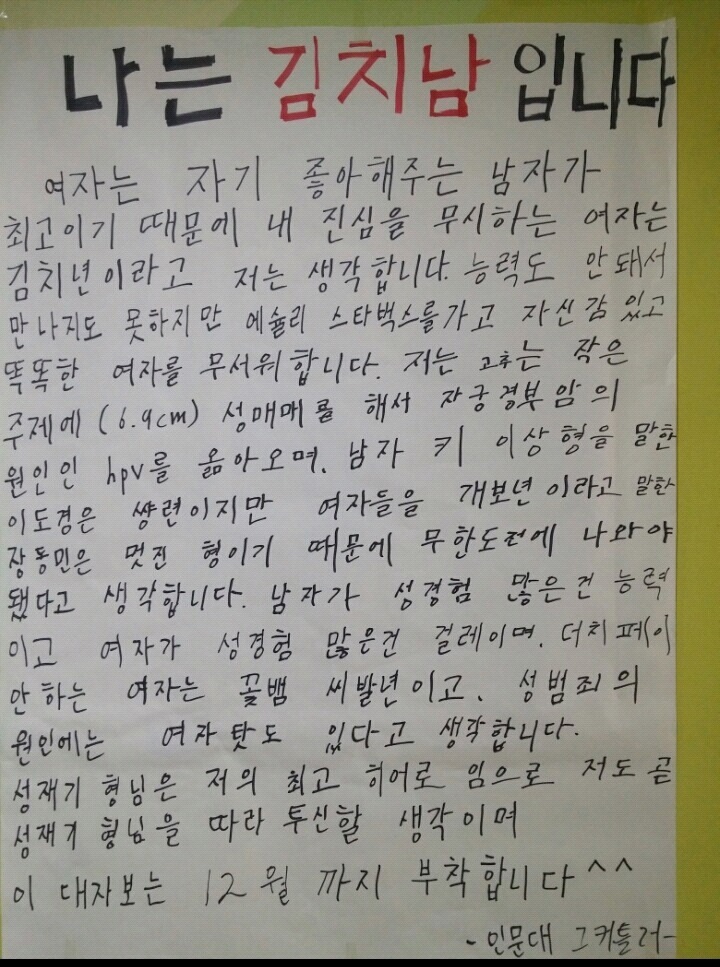 나는 김치남 입니다
여자는 자기 좋아해주는 남자가
최고이기 때문에 내 진심을 무시하는 여자는
김치년이라고 저는 생각합니다. 능력도 안돼서
만나지도 못하지만 에슐리 스타벅스를가고 자신감 있고
똑똑한 여자를 무서워합니다. 저는 고추는 작은
주제에 (6.9cm) 성매매를 해서 자궁경부암의
원인인 hpv를 옮아오며, 남자 키 이상형을 말한
이도경은 썅련이지만 여자들을 개보년이라고 말한
장동민은 멋진 형이기 때문에 무한도전에 나와야
됐다고 생각합니다. 남자가 성경험 많은건 능력
이고 여자가 성경험 많은건 걸레이며, 더치페이
안하는 여자는 꽃뱀 씨발년이고, 성범죄의
원인에는 여자탓도 있다고 생각합니다.
성재기 형님은 저의 최고 히어로 임으로 저도 곧
성재기 형님을 따라 투신할 생각이며
이 대자보는 12월 까지 부착합니다^^
-인문대 그커틀러-